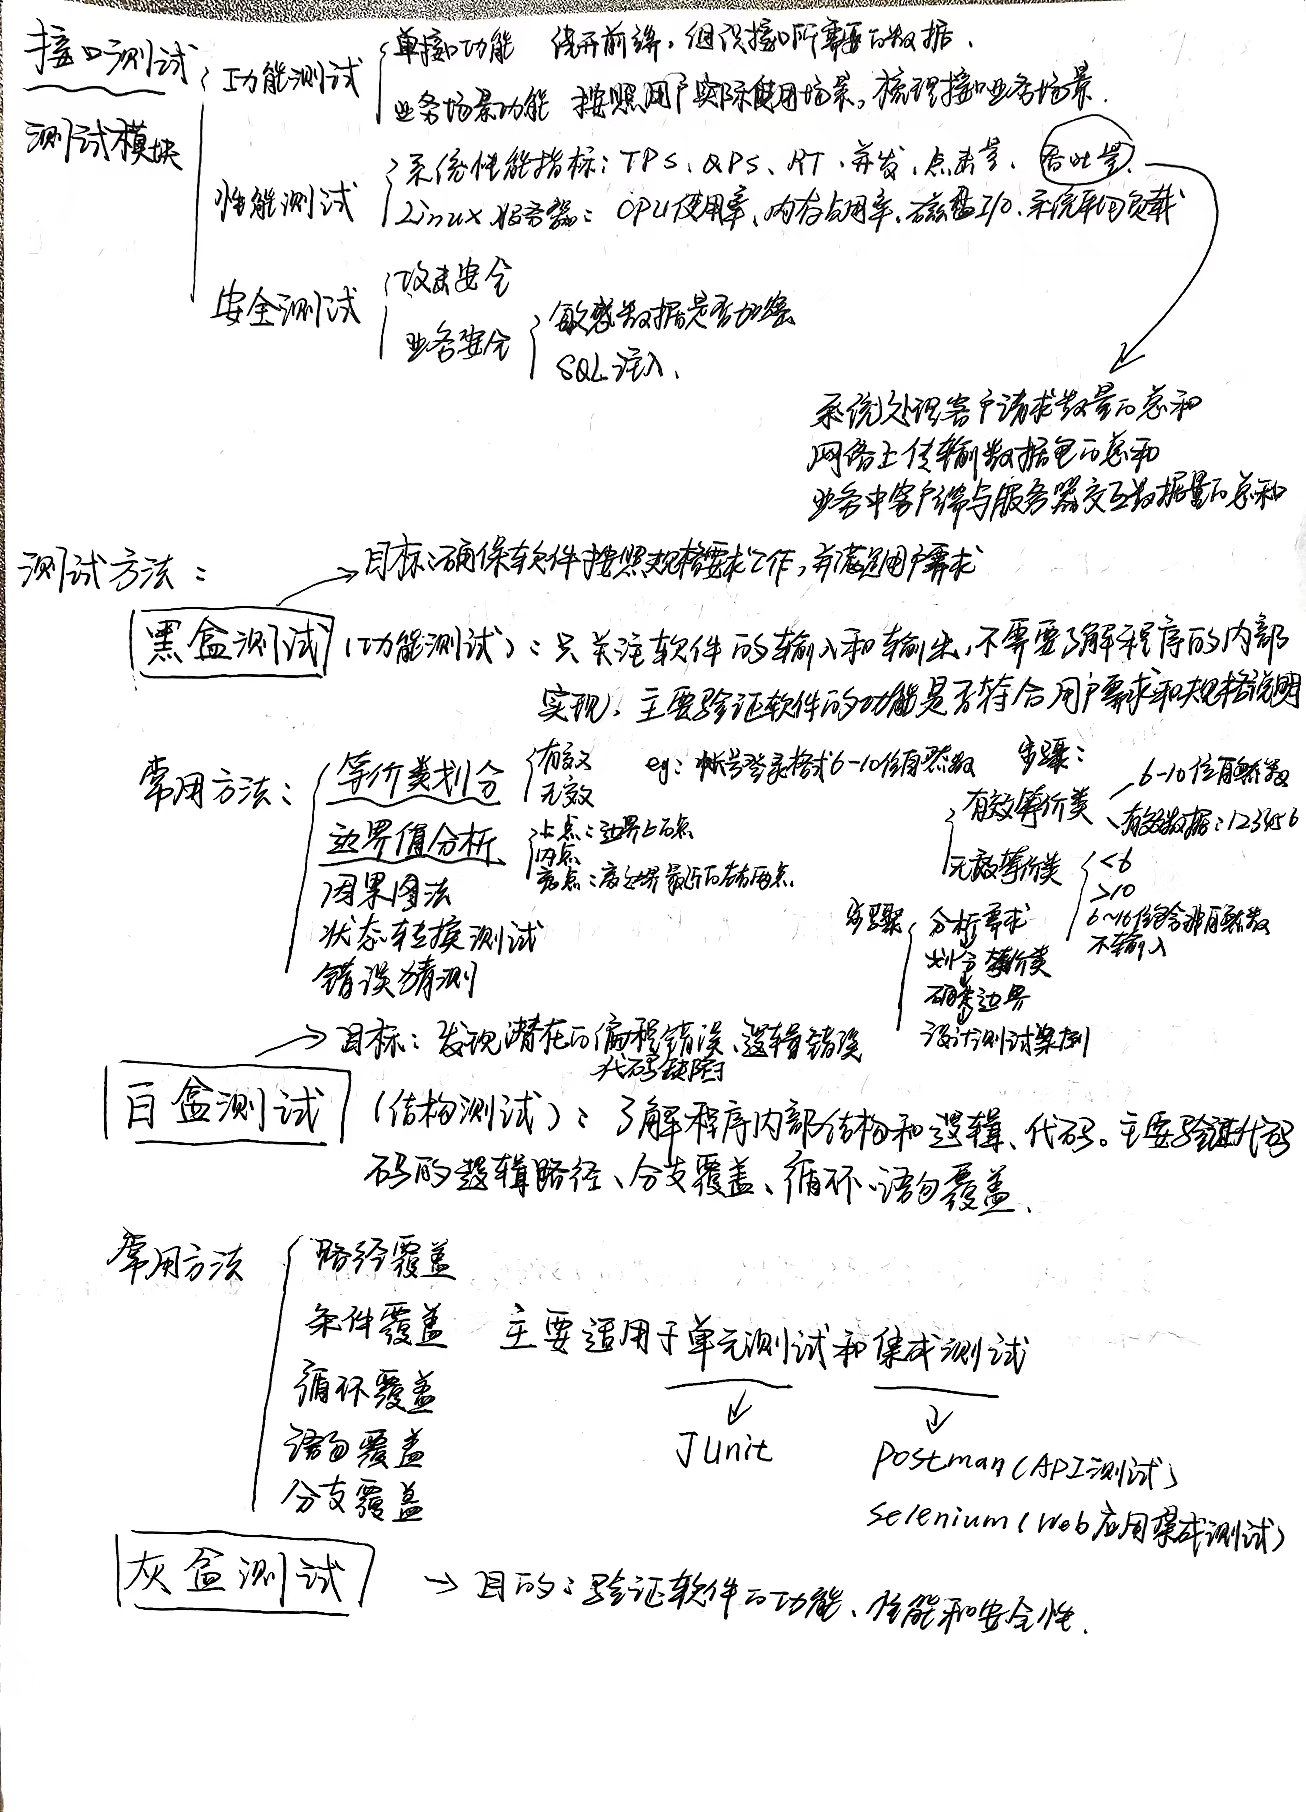 接口测试
测试模块
功能测试
单接口功能 绕开前端,组织接口所需要的数据.
业务场景功能 按照用户实际使用场景,梳理接口业务场景.
性能测试
系统性能指标:TPS、QPS、RT、并发、点击量、吞吐量
Linux服务器:CPU使用率、内存占用率、磁盘I/O、系统平均负载
安全测试
攻击安全
业务安全
敏感数据是否加密
SQL注入.
系统处理客户请求数量的总和
网络上传输数据包的总和
业务中客户端与服务器交互数据量的总和
测试方法:
目标:确保软件按照规格要求工作,并满足用户需求
黑盒测试(功能测试):只关注软件的输入和输出,不需要了解程序的内部
实现,主要验证软件的功能是否符合用户需求和规格说明
常用方法:
等价类划分
有效
无效
eg:帐号登录格式6-10位自然数
步骤:
有效等价类
6-10位自然数
有效数据:123456
无效等价类
<6
>10
6~10位包含非自然数
不输入
边界值分析
上点:边界上的点
内点
离点:离边界最近的左右两点
因果图法
状态转换测试
错误猜测
步骤
分析需求
划分等价类
确定边界
设计测试案例
目标:发现潜在的编程错误、逻辑错误
代码缺陷
白盒测试(结构测试):了解程序内部结构和逻辑、代码。主要验证代码
码的逻辑路径、分支覆盖、循环、语句覆盖、
常用方法
路径覆盖
条件覆盖
循环覆盖
语句覆盖
分支覆盖
主要适用于单元测试和集成测试
JUnit
Postman(API测试)
Selenium(Web应用集成测试)
灰盒测试
目的:验证软件的功能、性能和安全性.